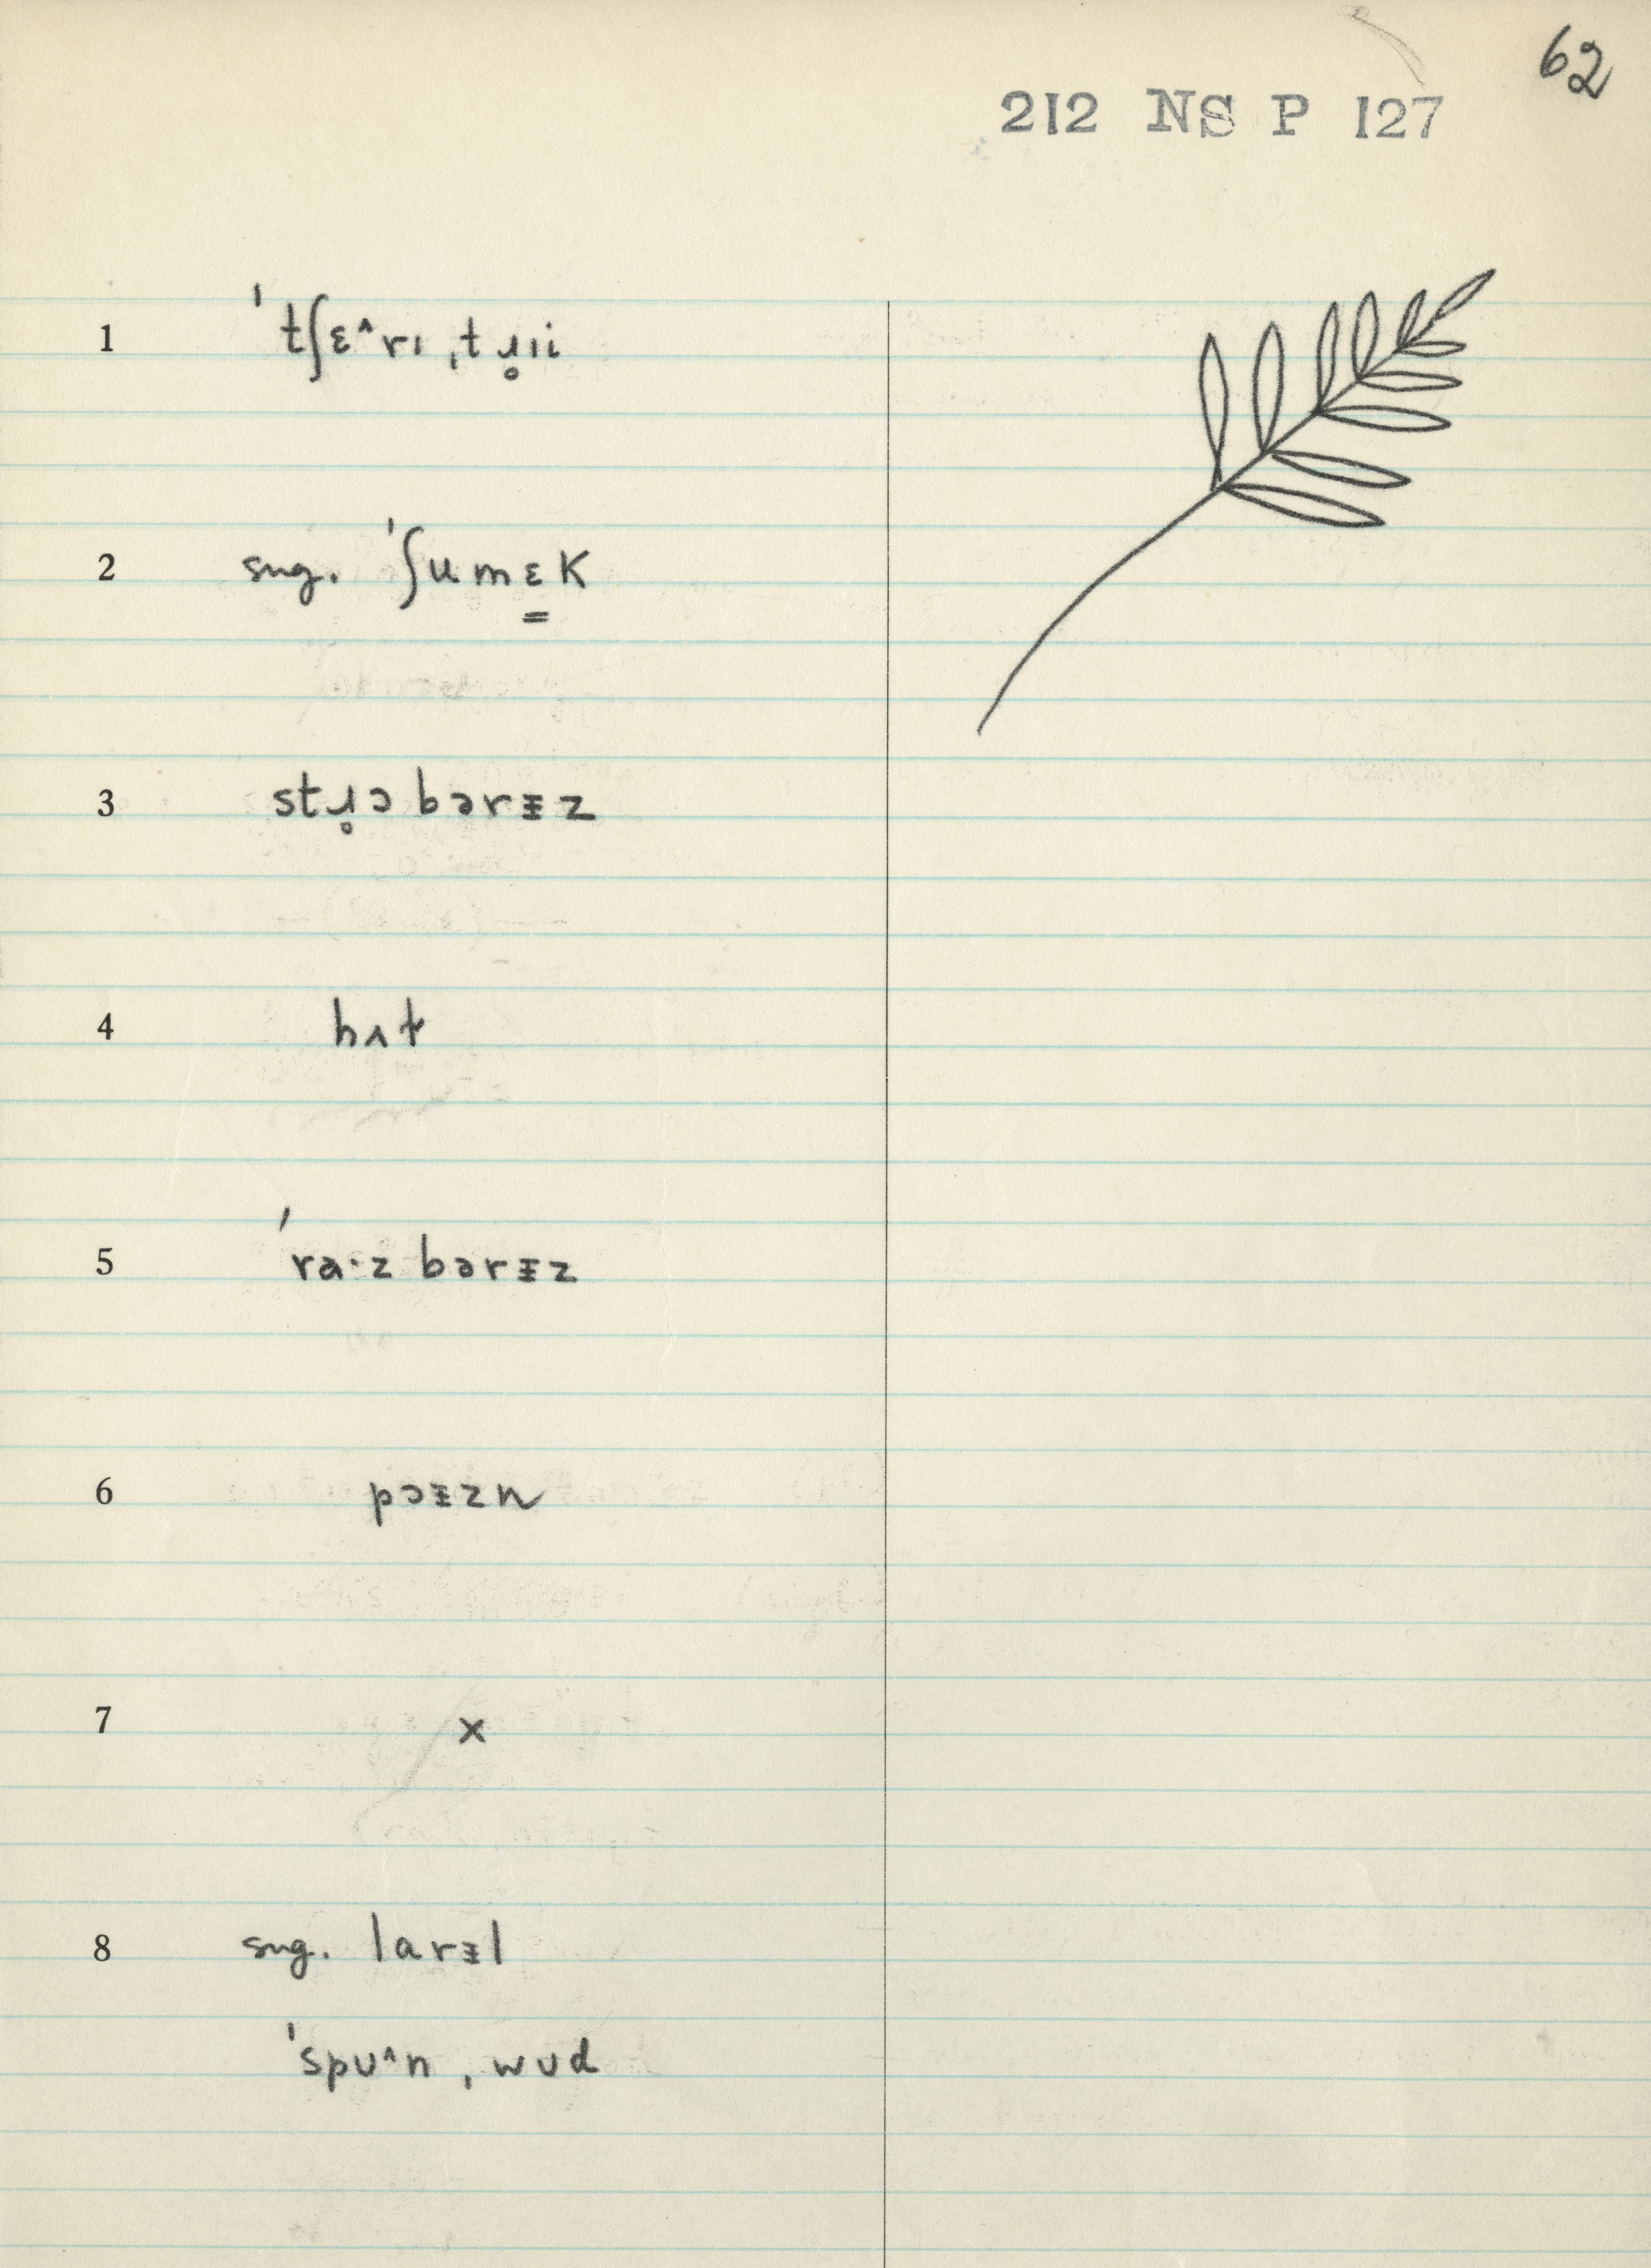 62
212 NS P 127
1 ˈtʃɛ^rɪ ˌtɹ̥ɪi
2 sng. ˈʃumɛ̳k
3 stɹ̥ɔ bərᵻz
4 hʌt
5 ˈra·z bərᵻz
6 pɔᵻzn
7 x
8 sng. larᵻl
ˈspu^n ˌwud